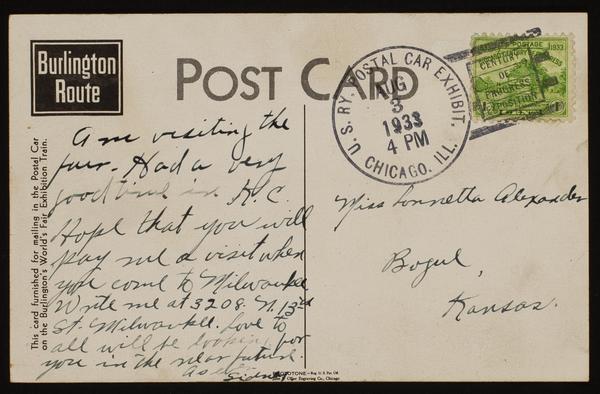 Burlington
Route
POST CARD
This card furnished for mailing in the Postal Car
on the Burlington's World's Fair Exhibition Train.
Am visiting the
fair. Had a very
good time in K.C.
Hope that you will
pay me a visit when
you come to Milwaukee
Write me at 3208 N. 13rd
St. Milwaukee. Love to
all will be looking for
you in the near future.
As ever
Sidney
U.S. RY. POSTAL CAR EXHIBIT.
AUG
3
1933
4 PM
CHICAGO, ILL.
POSTAGE 1933
CENTURY
OF
PROGRESS
EXPOSITION
Miss Lonnetta Alexander
Bogue,
Kansas.
Reg. U.S. Pat. Off.
Engraving Co., Chicago